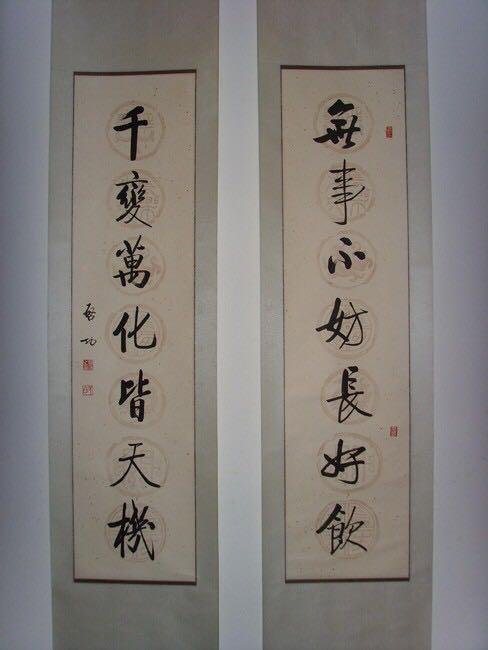 無事不妨長好飲
千變萬化皆天機
啟功